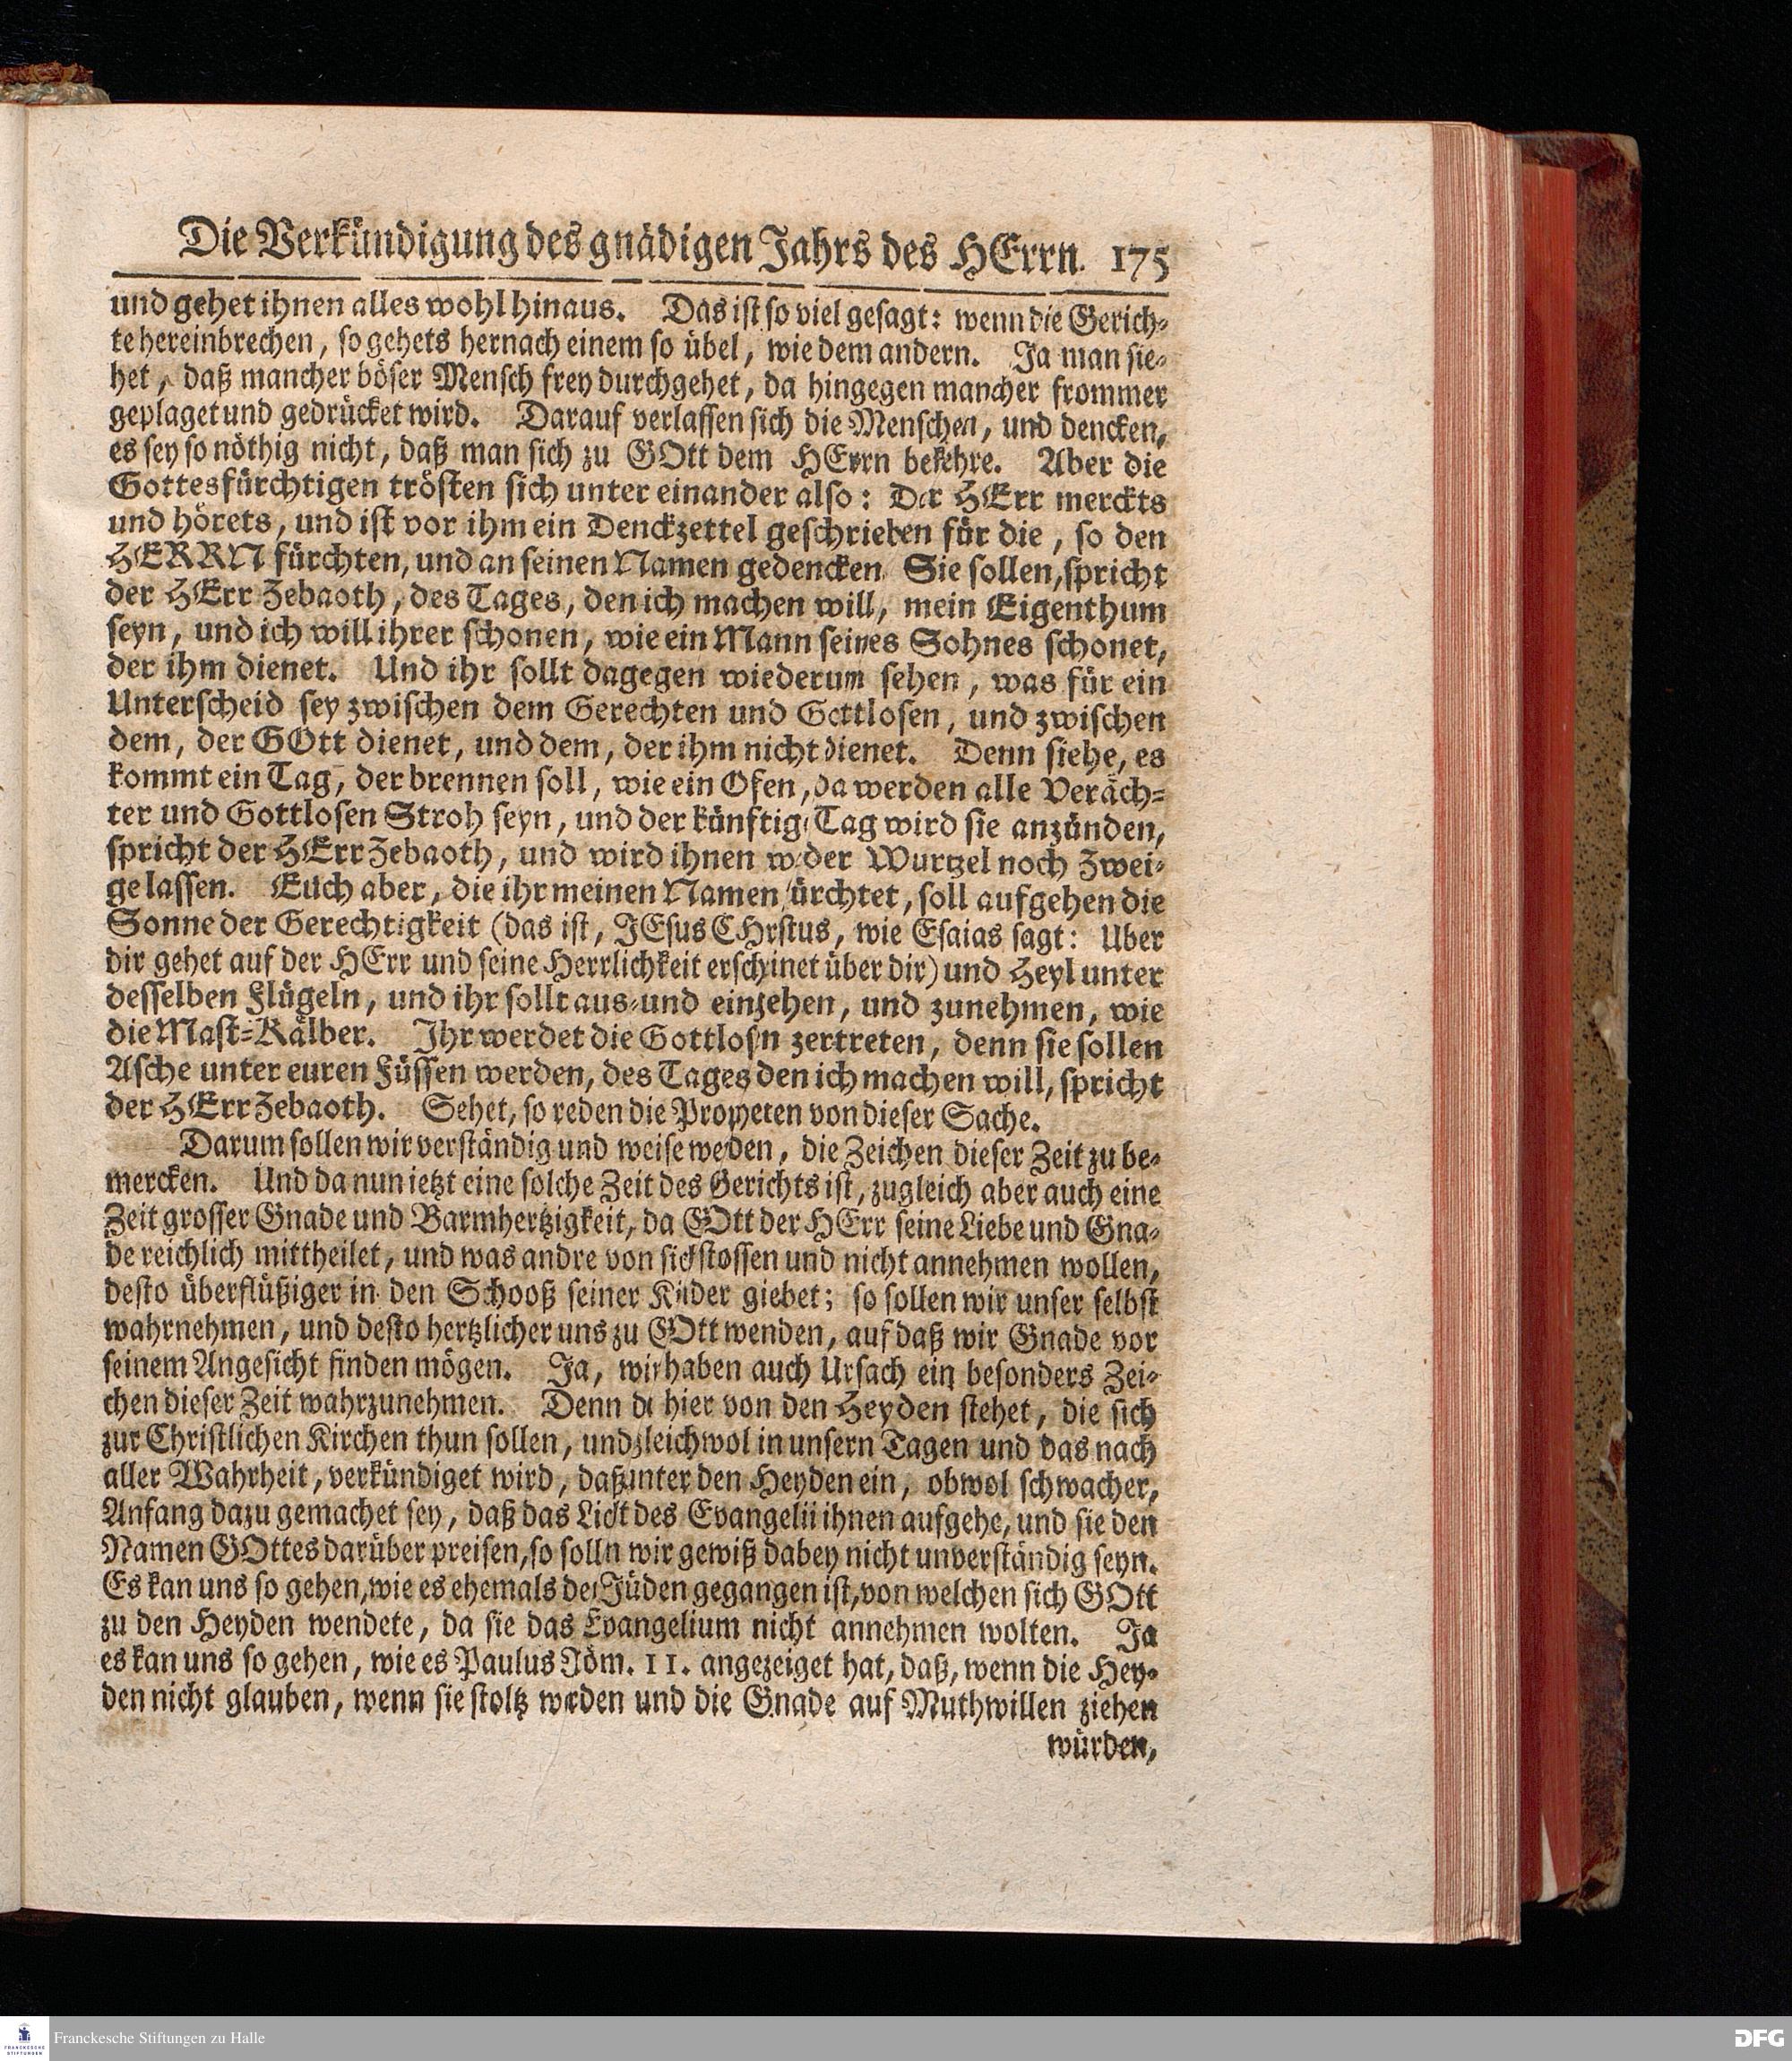 Die Verkündigung des gnädigen Jahrs des HErrn. 175
und gehet ihnen alles wohl hinaus. Das ist so viel gesagt: wenn die Gerich-
te hereinbrechen, so gehets hernach einem so übel, wie dem andern. Ja man sie-
het, daß mancher böser Mensch frey durchgehet, da hingegen mancher frommer
geplaget und gedrücket wird. Darauf verlassen sich die Menschen, und dencken,
es sey so nöthig nicht, daß man sich zu GOtt dem HErrn bekehre. Aber die
Gottesfürchtigen trösten sich unter einander also: Der HErr merckts
und hörets, und ist vor ihm ein Denckzettel geschrieben für die, so den
HERRN fürchten, und an seinen Namen gedencken. Sie sollen, spricht
der HErr Zebaoth, des Tages, den ich machen will, mein Eigenthum
seyn, und ich will ihrer schonen, wie ein Mann seines Sohnes schonet,
der ihm dienet. Und ihr sollt dagegen wiederum sehen, was für ein
Unterscheid sey zwischen dem Gerechten und Gottlosen, und zwischen
dem, der GOtt dienet, und dem, der ihm nicht dienet. Denn siehe, es
kommt ein Tag, der brennen soll, wie ein Ofen, da werden alle Veräch-
ter und Gottlosen Stroh seyn, und der künftige Tag wird sie anzünden,
spricht der HErr Zebaoth, und wird ihnen weder Wurtzel noch Zwei-
ge lassen. Euch aber, die ihr meinen Namen fürchtet, soll aufgehen die
Sonne der Gerechtigkeit (das ist, JEsus CHrstus, wie Esaias sagt: Uber
dir gehet auf der HErr und seine Herrlichkeit erscheinet über dir) und Heyl unter
desselben Flügeln, und ihr sollt aus- und eingehen, und zunehmen, wie
die Mast-Kälber. Ihr werdet die Gottlosen zertreten, denn sie sollen
Asche unter euren Füssen werden, des Tages den ich machen will, spricht
der HErr Zebaoth. Sehet, so reden die Propheten von dieser Sache.
Darum sollen wir verständig und weise werden, die Zeichen dieser Zeit zu be-
mercken. Und da nun ietzt eine solche Zeit des Gerichts ist, zugleich aber auch eine
Zeit grosser Gnade und Barmhertzigkeit, da GOtt der HErr seine Liebe und Gna-
de reichlich mittheilet, und was andre von sich stossen und nicht annehmen wollen,
desto überflüßiger in den Schooß seiner Kinder giebet; so sollen wir unser selbst
wahrnehmen, und desto hertzlicher uns zu GOtt wenden, auf daß wir Gnade vor
seinem Angesicht finden mögen. Ja, wir haben auch Ursach ein besonders Zei-
chen dieser Zeit wahrzunehmen. Denn da hier von den Heyden stehet, die sich
zur Christlichen Kirchen thun sollen, und gleichwol in unsern Tagen und das nach
aller Wahrheit, verkündiget wird, daß unter den Heyden ein, obwol schwacher,
Anfang dazu gemachet sey, daß das Licht des Evangelii ihnen aufgehe, und sie den
Namen GOttes darüber preisen, so sollen wir gewiß dabey nicht unverständig seyn.
Es kan uns so gehen, wie es ehemals den Jüden gegangen ist, von welchen sich GOtt
zu den Heyden wendete, da sie das Evangelium nicht annehmen wolten. Ja
es kan uns so gehen, wie es Paulus Röm. 11. angezeiget hat, daß, wenn die Hey-
den nicht glauben, wenn sie stoltz werden und die Gnade auf Muthwillen ziehen
würden,
FRANCKESCHE STIFTUNGEN
Franckesche Stiftungen zu Halle
DFG